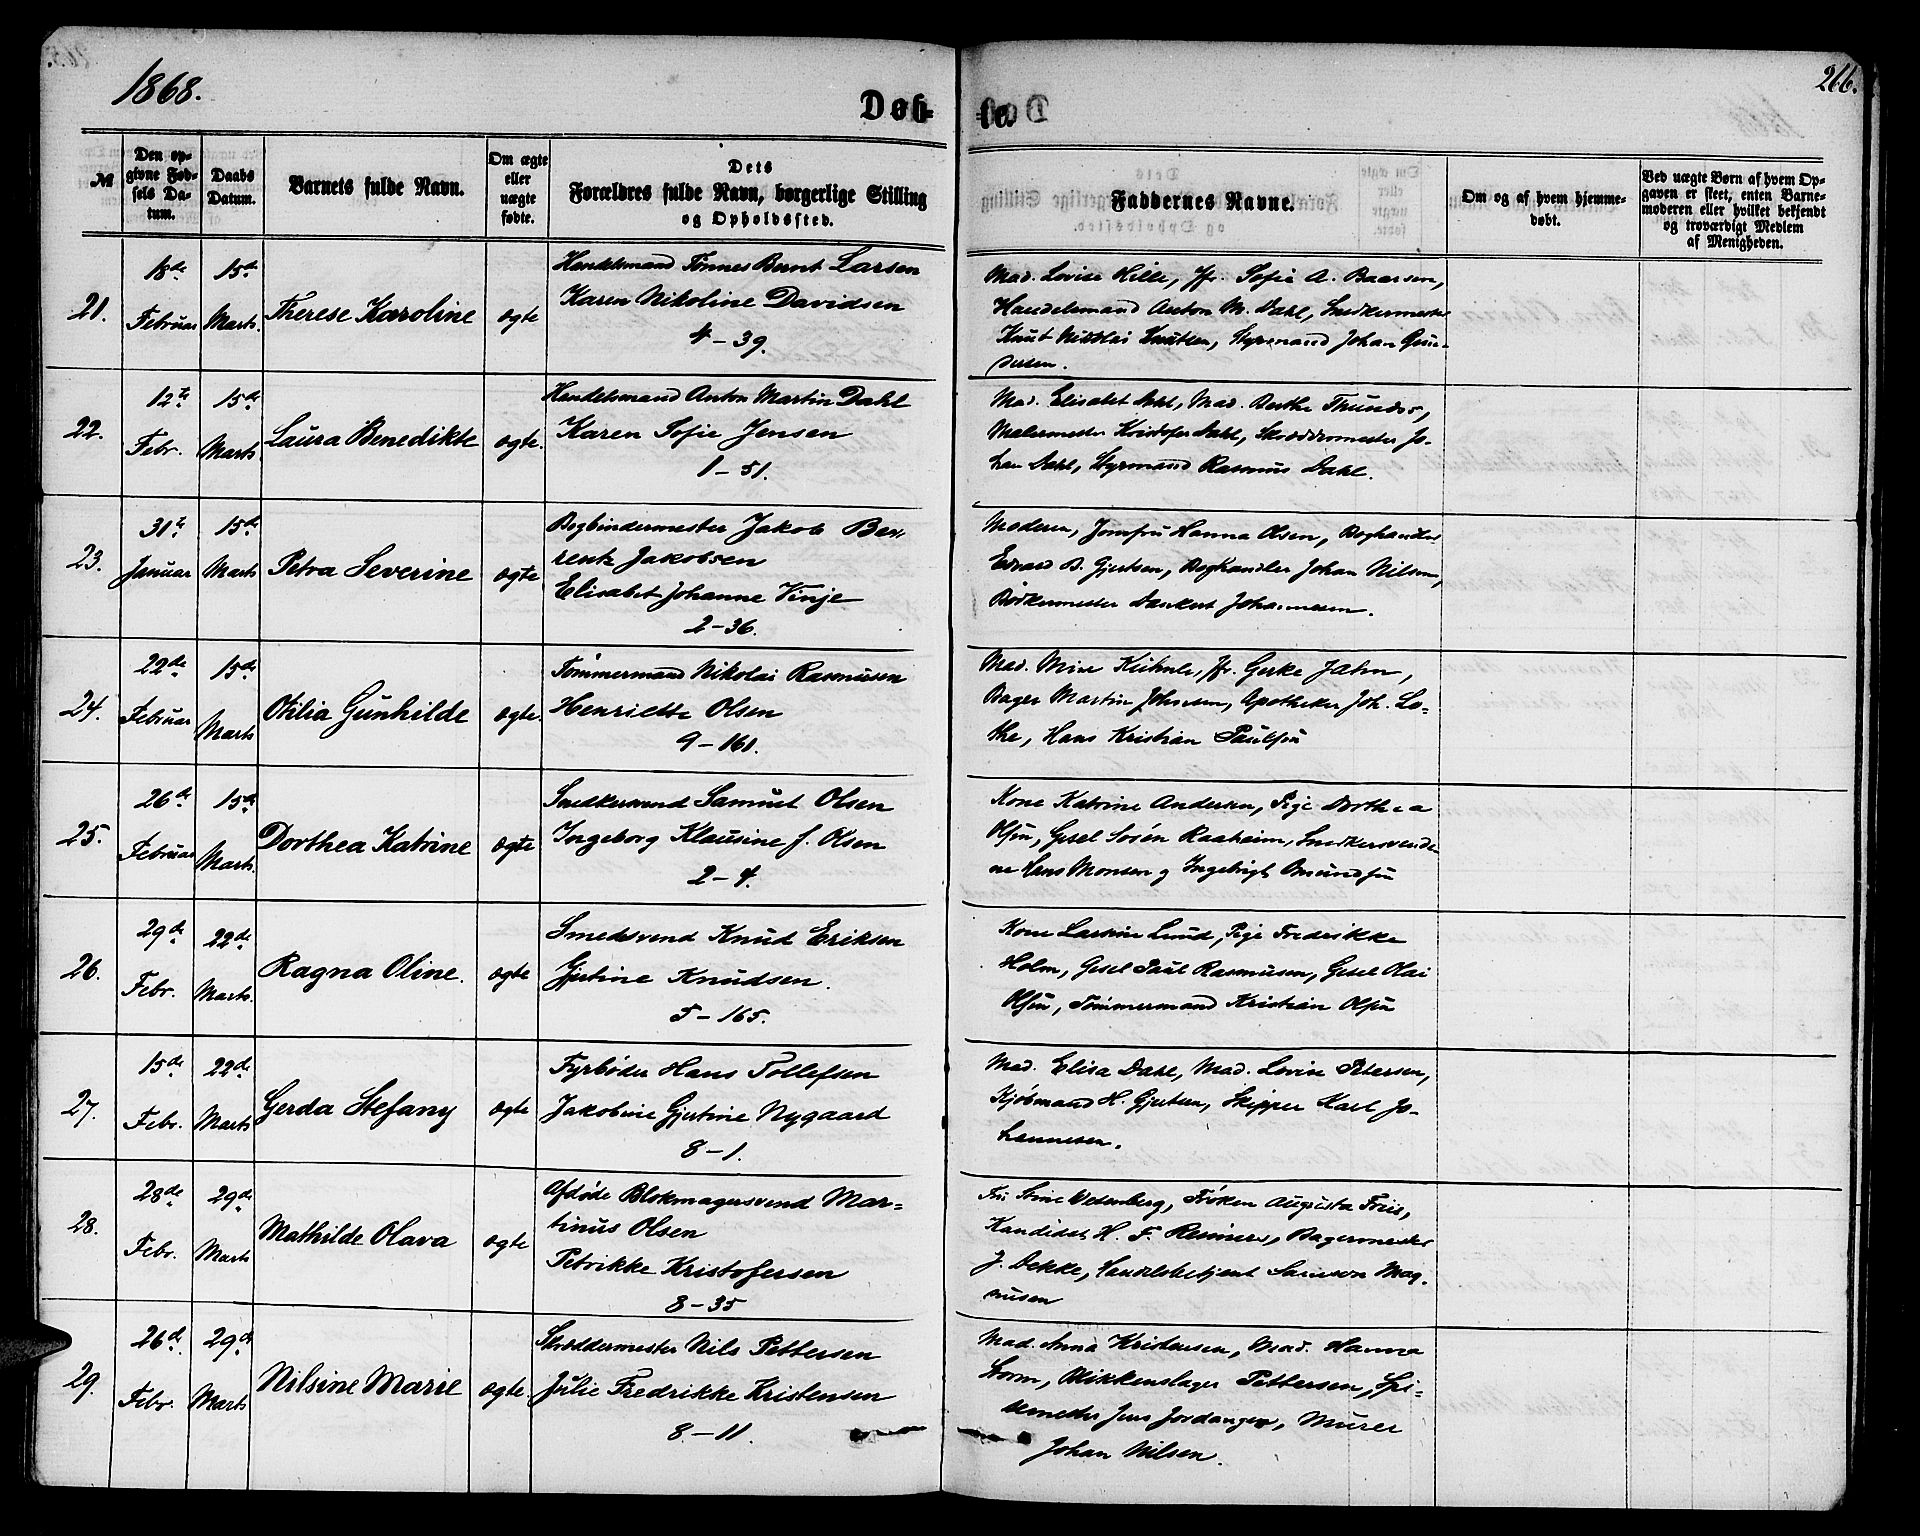 1868.
266.
Døb- te.
№
Den op-
givne Fød-
sels Da-
tum.
Daabs
Datum.
Barnets fulde Navn.
Om ægte
eller
uægte
fødte.
Dets
Forældres fulde Navn, borgerlige Stilling
og Opholdssted.
Faddernes Navne.
Om og af hvem hjemme-
døbt.
Ved uægte Børn af hvem Op-
gaven er skeet, enten Barne-
moderen eller hvilket bekjendt
og troværdigt Medlem
af Menigheden.
21.
18de
Februar
15de
Marts
Therese Karoline
ægte
Handelsmand Tønnes Bernt Larsen
Karen Nikoline Davidsen
4-39.
Mad. Lovise Hille, Jfr. Sofie A. Baarsen,
Handelsmand Anton M. Dahl, Snedkermester
Knut Nikolai Knutsen, Styrmand Johan Gun-
dersen.
22.
12te
Febr.
15de
Marts
Laura Benedikte
ægte.
Handelsmand Anton Martin Dahl
Karen Sofie Jensen
1-51.
Mad. Elisabet Dahl, Mad. Berthe
Malermester Kristofer Dahl, Skræddermester Jo-
han Dahl, Styrmand Rasmus Dahl.
23.
31te
Januar
15de
Marts
Petra Severine
ægte
Bogbindermester Jakob Ber-
rentz Jakobsen
Elisabet Johanne Vinje
2-36.
Moderen, Jomfru Hanna Olsen, Boghandler
Edvard B. Gjertsen, Boghandler Johan Nilsen,
Bødkermester Dankert Johannesen.
24.
22de
Februar
15de
Marts
Otilia Gunhilde
ægte.
Tømmermand Nikolai Rasmusen
Henriette Olsen
9-161.
Mad. Mine Kühnle, Jfr. Gerke Jahn,
Bager Martin Johnsen, Apotheker Joh. Lo-
the, Hans Kristian Paulsen
25.
26de
Februar
15de
Marts.
Dorthea Katrine
ægte
Snedkersvend Samuel Olsen
Ingeborg Klausine f. Olsen
2-4.
Kone Katrine Andersen, Pige Dorthea
Olsen, Gesel Sosen Raaheim, Snedkersvende-
ne Hans Monsen og Ingebrigt Omundsen
26.
29de
Febr.
22de
Marts.
Ragna Oline.
ægte
Smedsvend Knud Eriksen
Gjertine Knudsen.
5-165.
Kone Larsine Lund, Pige Fredrikke
Holm, Gesel Paul Rasmusen, Gesel Olai
Olsen, Tømmermand Kristian Olsen
27.
15de
Febr.
22de
Marts
Gerda Stefany
ægte
Fyrbøder Hans Tollefsen
Jakobine Gjertine Nygaard
8-1.
Mad. Elisa Dahl, Mad. Lovise Petersen,
Kjøbmand H. Gjertsen, Skipper Karl Jo-
hannesen.
28.
28de
Febr.
29de
Marts
Mathilde Olava
ægte
Afdøde Blokmagersvend Mar-
tinus Olsen
Petrikke Kristofersen
8-35
Fru Stine Wesenberg, Frøken Augusta Friis,
Kandidat H. F. Bagermester
J. Dekke, Handelsbetjent Samson Mag-
nusen
29.
26de
Febr.
29de
Marts
Nilsine Marie
ægte.
Skræddermester Nils Pettersen
Julie Fredrikke Kristensen
8-11.
Mad. Anna Kristensen, Mad. Hanna
Storm, Blikkenslager Pettersen,
Jens Jordanger, Murer
Johan Nilsen.